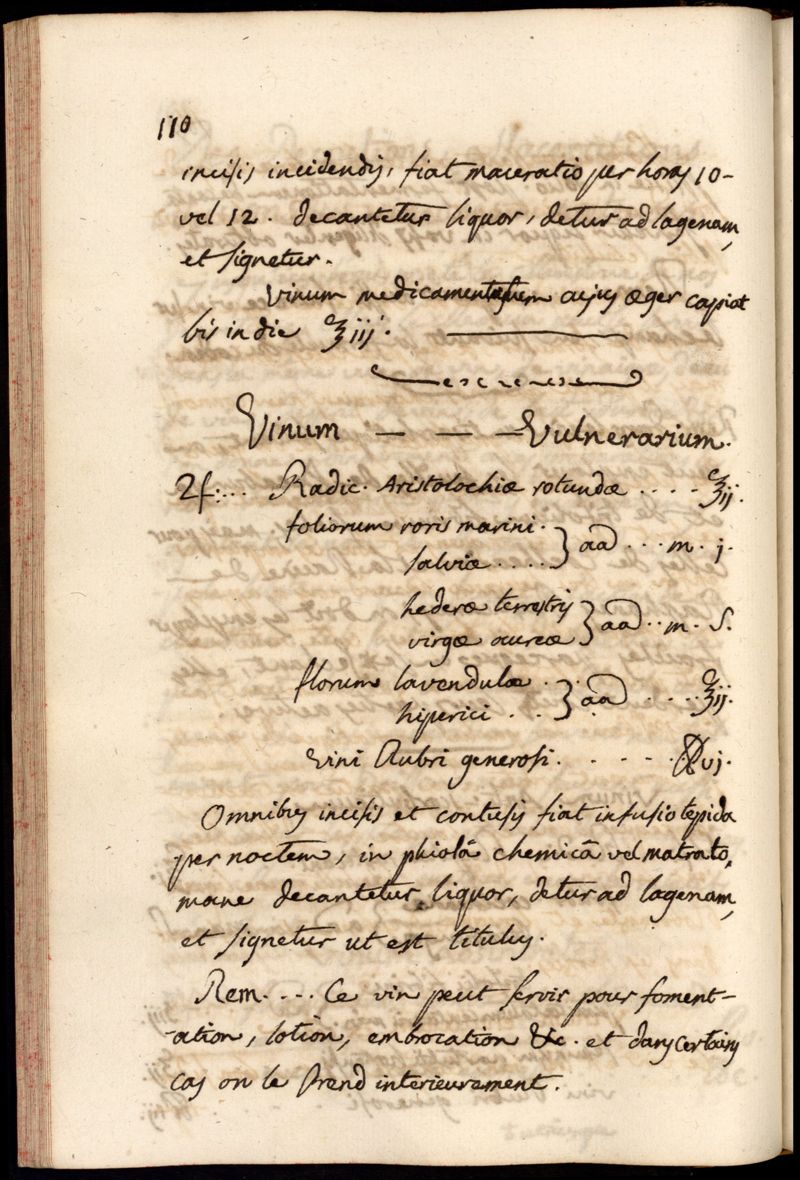 110
incisis incidendis, fiat maceratio per horas 10-
vel 12. decantetur liquor, detur ad lagenam,
et signetur.
Vinum medicamentosum cujus æger capiat
bis in die ℥iij.
Vinum — — — Vulnerarium.
♃:... Radic. Aristolochiæ rotundæ .... ℥ij.
foliorum roris marini.
salviæ ..... } aa ... m. j.
hederæ terrestris
virgæ aureæ } aa .. m. S.
florum lavendulæ ..
hiperici ... } aa .... ℥ij.
Vini Rubri generosi. ..... ℔vj.
Omnibus incisis et contusis fiat infusio tepida
per noctem, in phiolâ chemicâ vel matrato,
mane decantetur liquor, detur ad lagenam,
et signetur ut est titulus.
Rem.... Ce vin peut servir pour foment-
-ation, lotion, embrocation &c. et dans certains
cas on le prend interieurement.